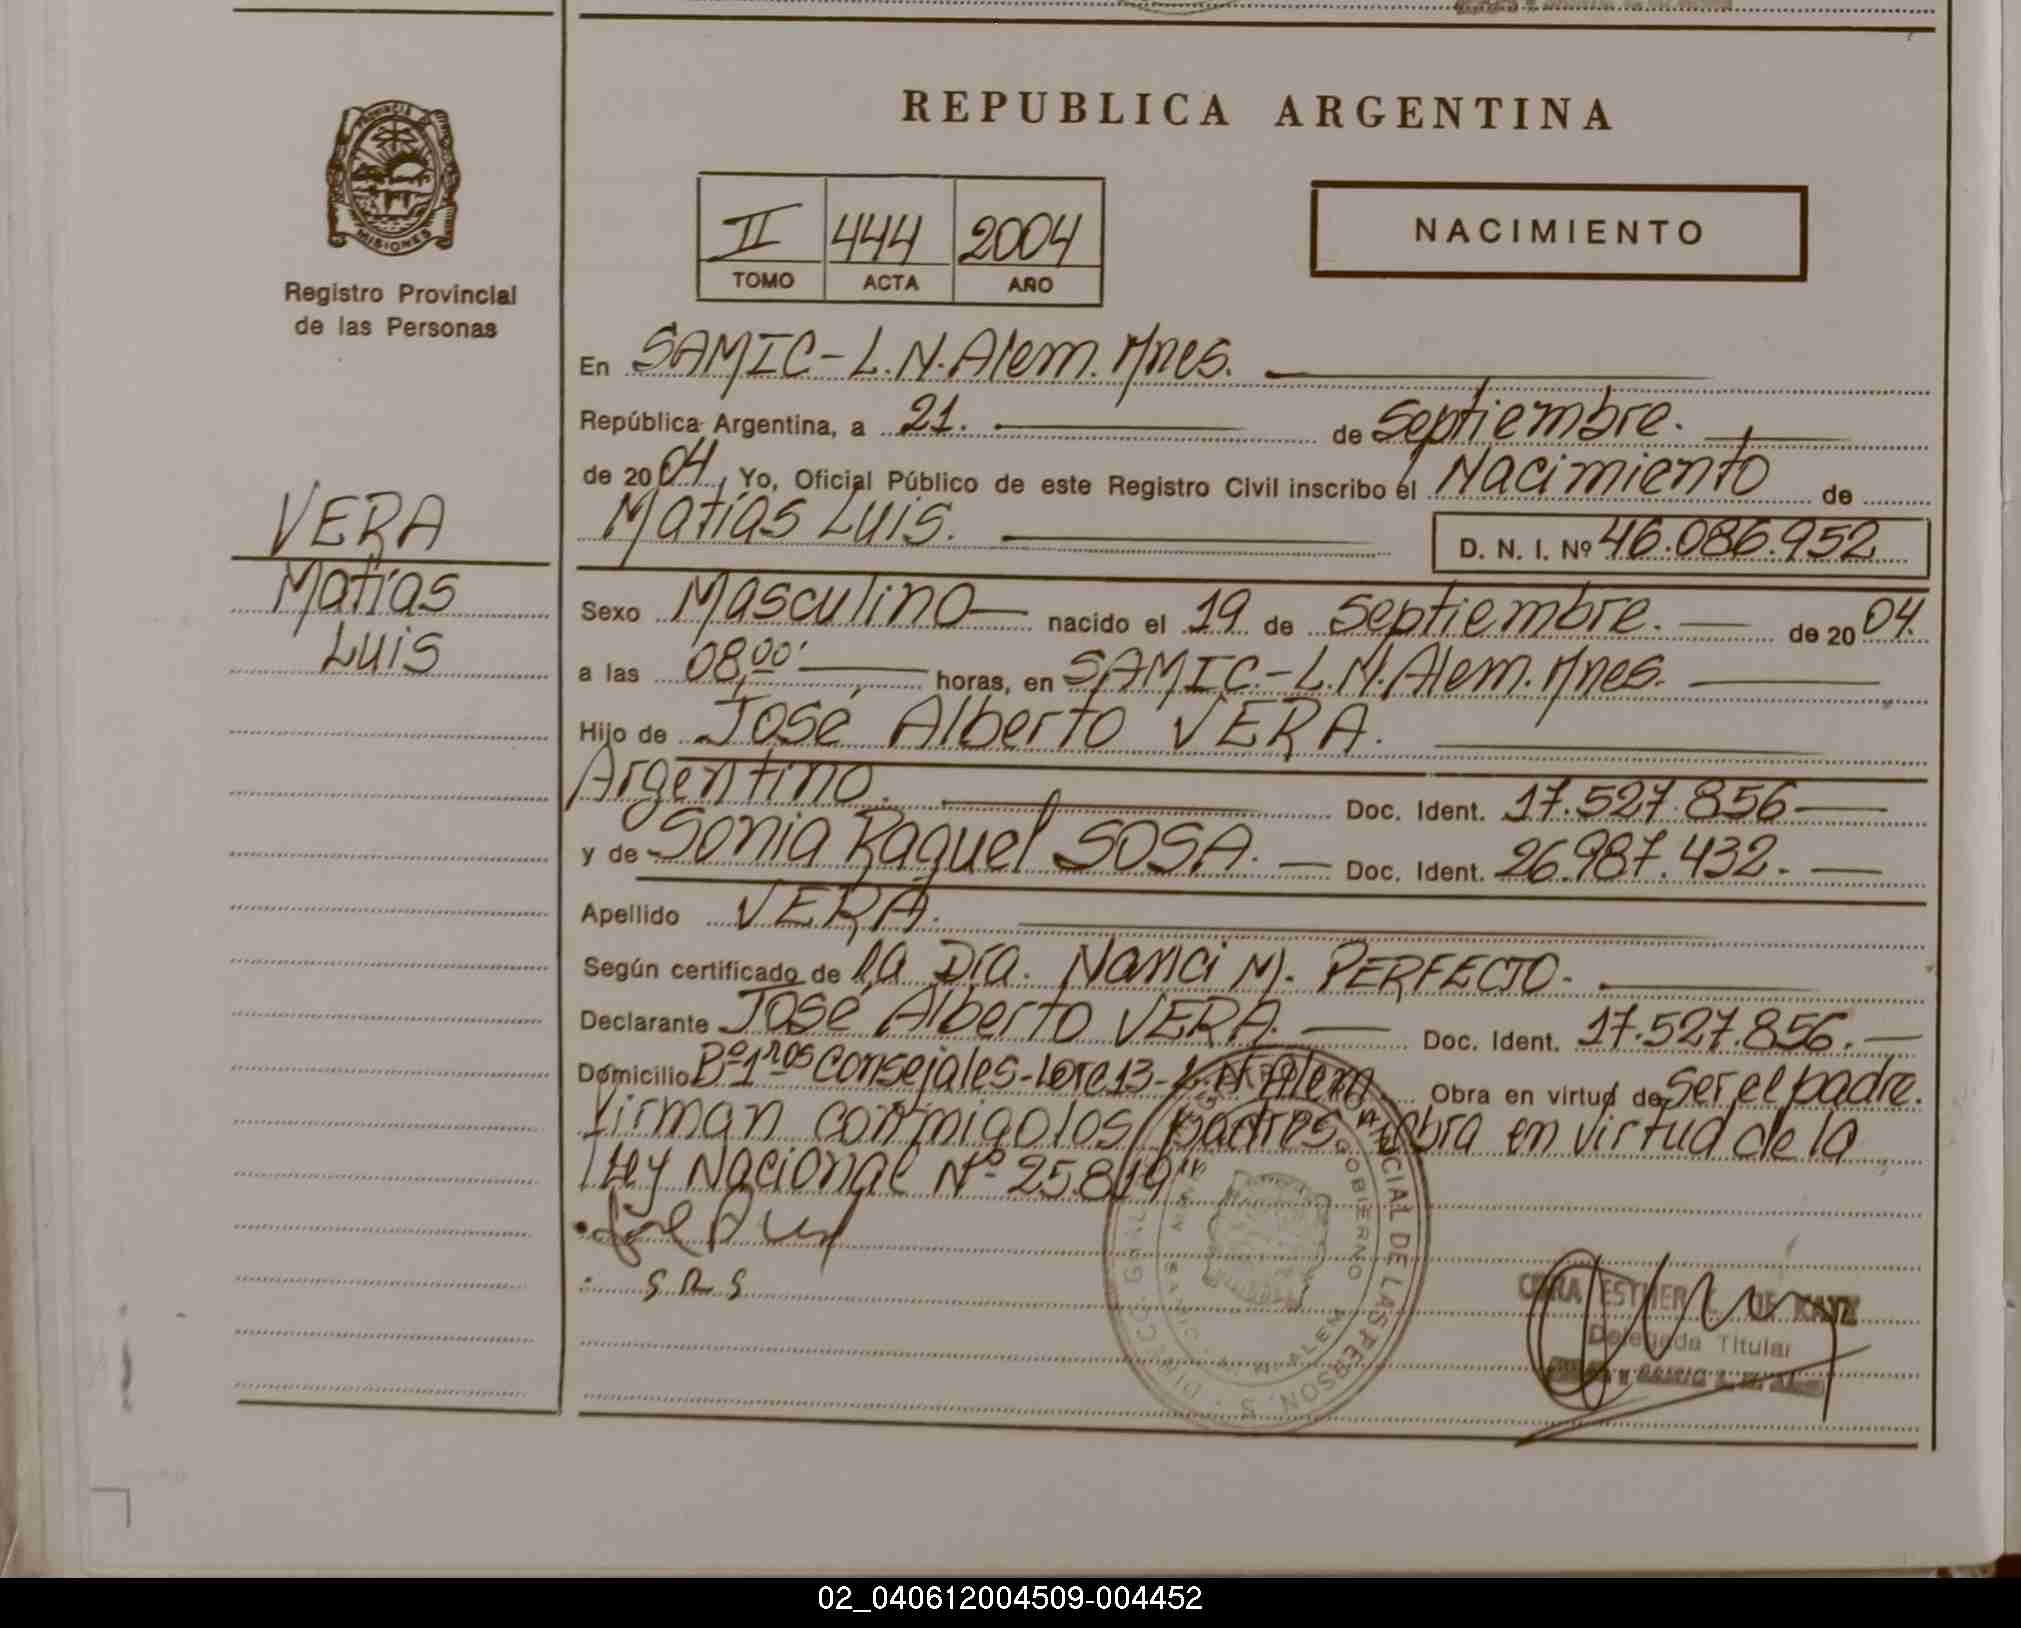 REPUBLICA ARGENTINA
PROVINCIA DE
MISIONES
Registro Provincial
de las Personas
II 444 2004
TOMO ACTA AÑO
NACIMIENTO
En SAMIC-L.N.Alem.Mnes.
República Argentina, a 21. de septiembre.
de 2004, Yo, Oficial Público de este Registro Civil inscribo el Nacimiento de
Matías Luis. D. N. I. Nº 46.086.952
VERA
Matías
Luis
Sexo Masculino nacido el 19 de septiembre. de 2004.
a las 08,00' horas, en SAMIC.-L.N.Alem.Mnes.
Hijo de José Alberto VERA.
Argentino. Doc. Ident. 17.527.856
y de Sonia Raquel SOSA. Doc. Ident. 26.987.432.
Apellido VERA.
Según certificado de la Dra. Nanci M. PERFECTO.
Declarante José Alberto VERA. Doc. Ident. 17.527.856.
Domicilio Bº1ros Consejales-Lote 13-L.N.Alem. Obra en virtud de Ser el padre.
Firman conmigo los padres. "Obra en virtud de la
Ley Nacional Nº 25.819"
S R S
PROVINCIAL DE LAS PERSONAS
GOBIERNO
ESTHER DE KAYZ
Delegada Titular
02_040612004509-004452